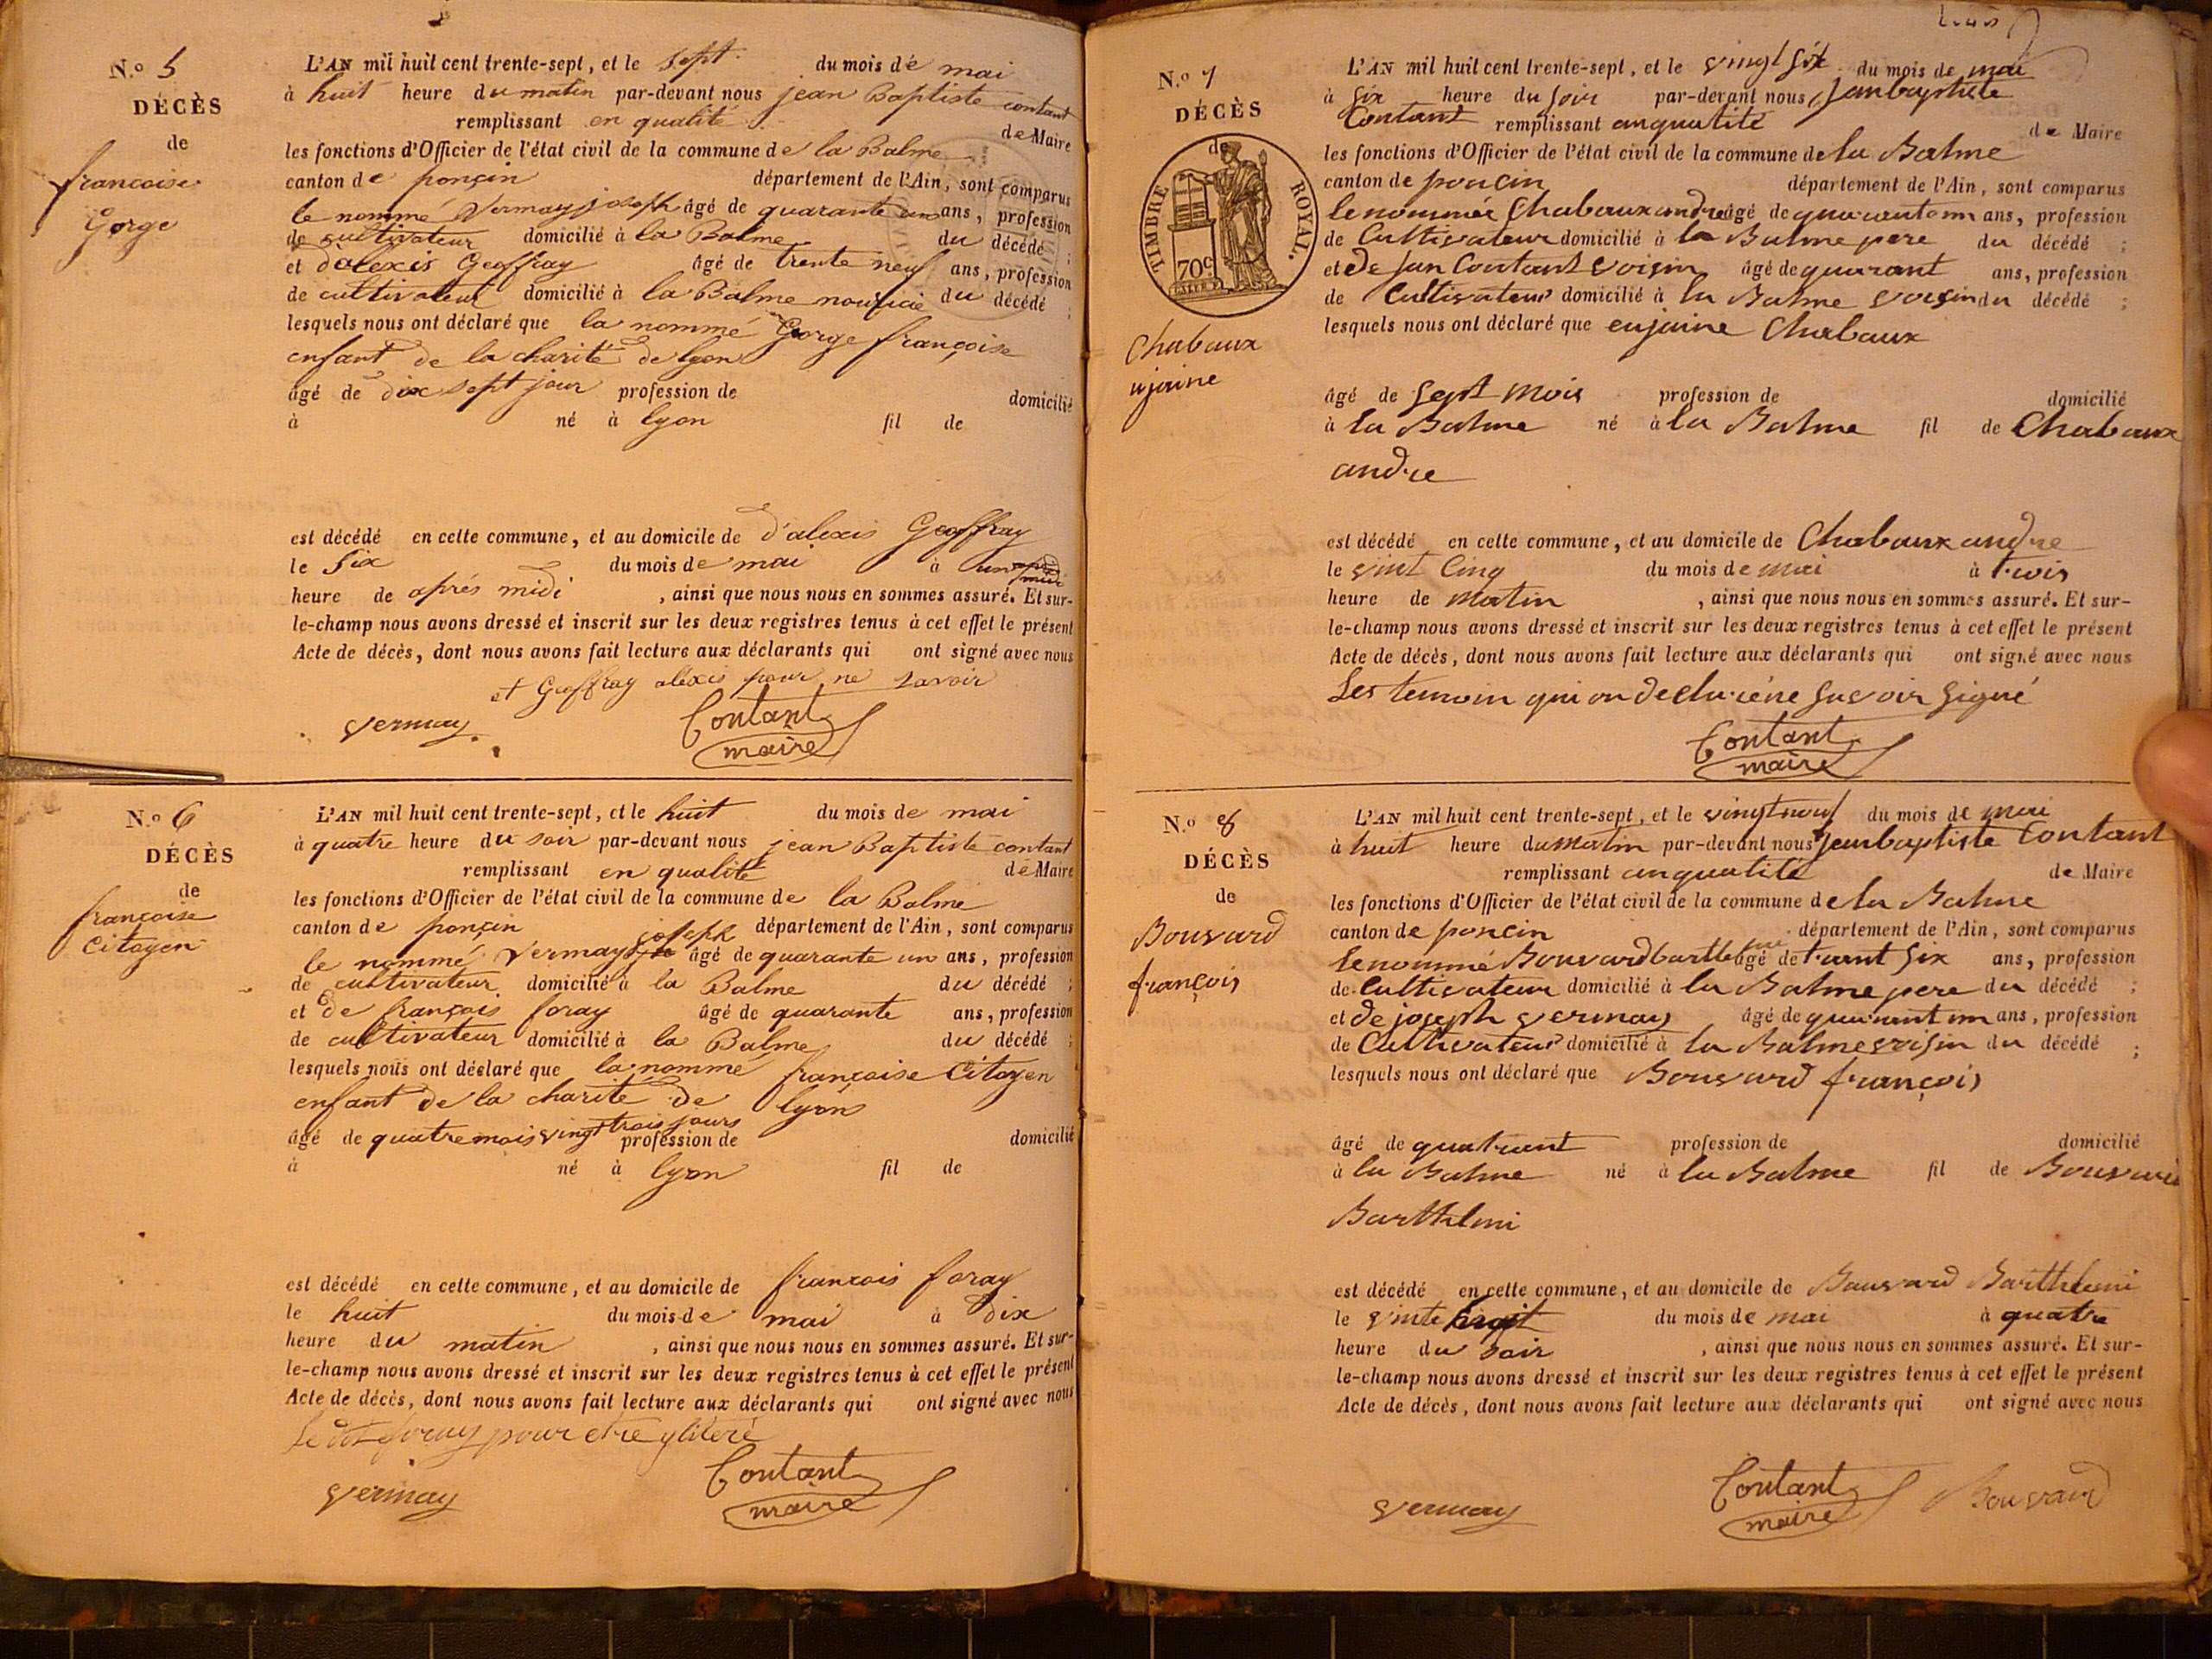 N.o 5
DÉCÈS
de
francoise
Gorge
L'AN mil huit cent trente-sept, et le sept du mois de mai
à huit heure du matin par-devant nous jean Baptiste contant
remplissant en qualité de Maire
les fonctions d'Officier de l'état civil de la commune de la Balme
canton de ponçin département de l'Ain, sont comparus
le nommé Vermay joseph âgé de quarante un ans, profession
de cultivateur domicilié à la Balme du décédé ;
et d'alexis Geoffray âgé de trente neuf ans, profession
de cultivateur domicilié à la Balme nouricié du décédé ;
lesquels nous ont déclaré que la nommé Gorge françoise
enfant de la charité de lyon
âgé de dix sept jour profession de domicilié
à né à lyon fil de
est décédé en cette commune, et au domicile de d'alexis Geoffray
le Six du mois de mai à un
heure de aprés midi , ainsi que nous nous en sommes assuré. Et sur-
le-champ nous avons dressé et inscrit sur les deux registres tenus à cet effet le présent
Acte de décès, dont nous avons fait lecture aux déclarants qui ont signé avec nous
et Geoffray alexis pour ne savoir
vermay Contant
maire
N.o 6
DÉCÈS
de
françoise
Citoyen
L'AN mil huit cent trente-sept, et le huit du mois de mai
à quatre heure du soir par-devant nous jean Baptiste contant
remplissant en qualité de Maire
les fonctions d'Officier de l'état civil de la commune de la Balme
canton de ponçin département de l'Ain, sont comparus
le nommé Vermay joseph âgé de quarante un ans, profession
de cultivateur domicilié à la Balme du décédé ;
et de françois foray âgé de quarante ans, profession
de cultivateur domicilié à la Balme du décédé ;
lesquels nous ont déclaré que la nommé françoise Citoyen
enfant de la charité de lyon
âgé de quatre mois vingt trois jours profession de domicilié
à né à lyon fil de
est décédé en cette commune, et au domicile de francois foray
le huit du mois de mai à dix
heure du matin , ainsi que nous nous en sommes assuré. Et sur-
le-champ nous avons dressé et inscrit sur les deux registres tenus à cet effet le présent
Acte de décès, dont nous avons fait lecture aux déclarants qui ont signé avec nous
le dit foray pour etre yliteré
vermay Contant
maire
N.o 7
DÉCÈS
de
TIMBRE ROYAL.
70c
Chabaux
ujaine
L'AN mil huit cent trente-sept, et le vingt six du mois de mai
à six heure du soir par-devant nous janbaptiste
Contant remplissant anqualité de Maire
les fonctions d'Officier de l'état civil de la commune de la Balme
canton de poncin département de l'Ain, sont comparus
le nommée Chabaux andre âgé de quarant un ans, profession
de Cultivateur domicilié à la Balme pere du décédé ;
et de Jan Contant voisin âgé de quarant ans, profession
de Cultivateur domicilié à la Balme voisin du décédé ;
lesquels nous ont déclaré que eujaine Chabaux
âgé de sept mois profession de domicilié
à la Balme né à la Balme fil de Chabaux
andre
est décédé en cette commune, et au domicile de Chabaux andre
le vint cinq du mois de mai à trois
heure de matin , ainsi que nous nous en sommes assuré. Et sur-
le-champ nous avons dressé et inscrit sur les deux registres tenus à cet effet le présent
Acte de décès, dont nous avons fait lecture aux déclarants qui ont signé avec nous
Les temoin qui on declaréne savoir signé
Contant
maire
N.o 8
DÉCÈS
de
Bouvard
françois
L'AN mil huit cent trente-sept, et le vingtneuf du mois de mai
à huit heure du matin par-devant nous janbaptiste Contant
remplissant anqualité de Maire
les fonctions d'Officier de l'état civil de la commune de la Balme
canton de poncin département de l'Ain, sont comparus
le nommé Bouvard âgé de trant six ans, profession
de Cultivateur domicilié à la Balme pere du décédé ;
et de joseph vermay âgé de quarant un ans, profession
de Cultivateur domicilié à la Balme voisin du décédé ;
lesquels nous ont déclaré que Bouvard françois
âgé de quatrant profession de domicilié
à la Balme né à la Balme fil de Bouvard
Barthelmi
est décédé en cette commune, et au domicile de Bouvard Barthelemi
le vinte huit du mois de mai à quatre
heure du soir , ainsi que nous nous en sommes assuré. Et sur-
le-champ nous avons dressé et inscrit sur les deux registres tenus à cet effet le présent
Acte de décès, dont nous avons fait lecture aux déclarants qui ont signé avec nous
vermay Contant Bouvard
maire